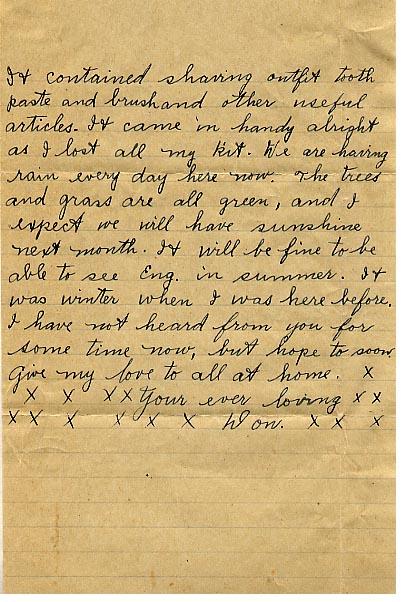 It contained shaving outfit tooth
paste and brush and other useful
articles. It came in handy alright
as I lost all my kit. We are having
rain every day here now. The trees
and grass are all green, and I
expect we will have sunshine
next month. It will be fine to be
able to see Eng. in summer. It
was winter when I was here before.
I have not heard from you for
some time now, but hope to soon
Give my love to all at home. X
X X X X Your ever loving X X
X X X X X X Don. X X X